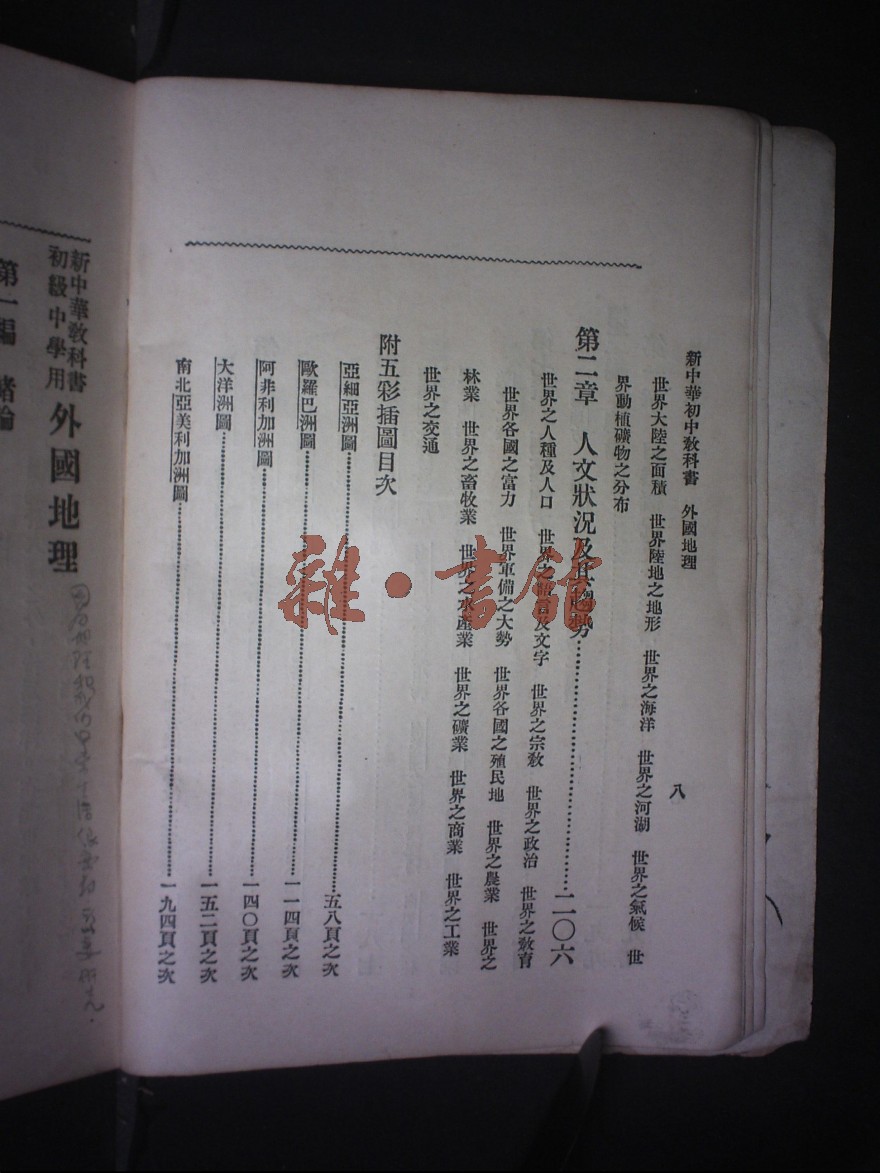 新中華初中教科書　外國地理
八
世界大陸之面積　世界陸地之地形　世界之海洋　世界之河湖　世界之氣候　世
界動植礦物之分布
第二章　人文狀況及其趨勢…………二〇六
世界之人種及人口　世界之語言及文字　世界之宗敎　世界之政治　世界之敎育
世界各國之富力　世界軍備之大勢　世界各國之殖民地　世界之農業　世界之
林業　世界之畜牧業　世界之水產業　世界之礦業　世界之商業　世界之工業
世界之交通
附五彩插圖目次
亞細亞洲圖…………五八頁之次
歐羅巴洲圖…………一一四頁之次
阿非利加洲圖…………一四〇頁之次
大洋洲圖…………一五二頁之次
南北亞美利加洲圖…………一九四頁之次
雜·書館
新中華敎科書
初級中學用
外國地理
第一編　緒論